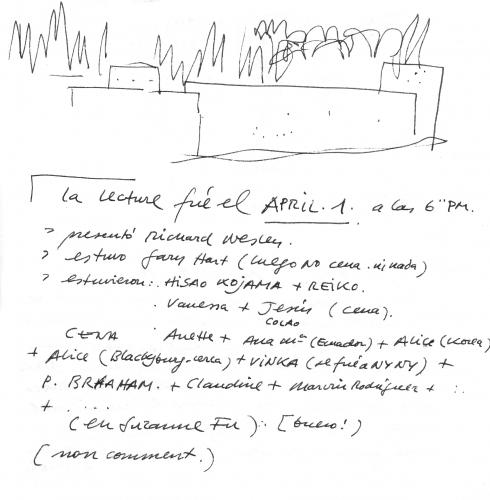 la lecture fué el APRIL.1. a las 6"PM.
> presentó Richard Wesley.
> estuvo Gary Hart (luego NO cena.ni nada)
> estuvieron: HISAO KOJAMA + REIKO.
. Vanessa + Jesús (cena).
COLAO
CENA Anette + Ana Mª (Ecuador) + Alice (Korea)
+ Alice (Blacksburg-cerca) + VINKA (se fué a NYNY) +
P. BRAHAM. + Claudine + Marvin Rodríguez + :.
+ ....
(en Suzanne Fu): [bueno!)
(non comment.)